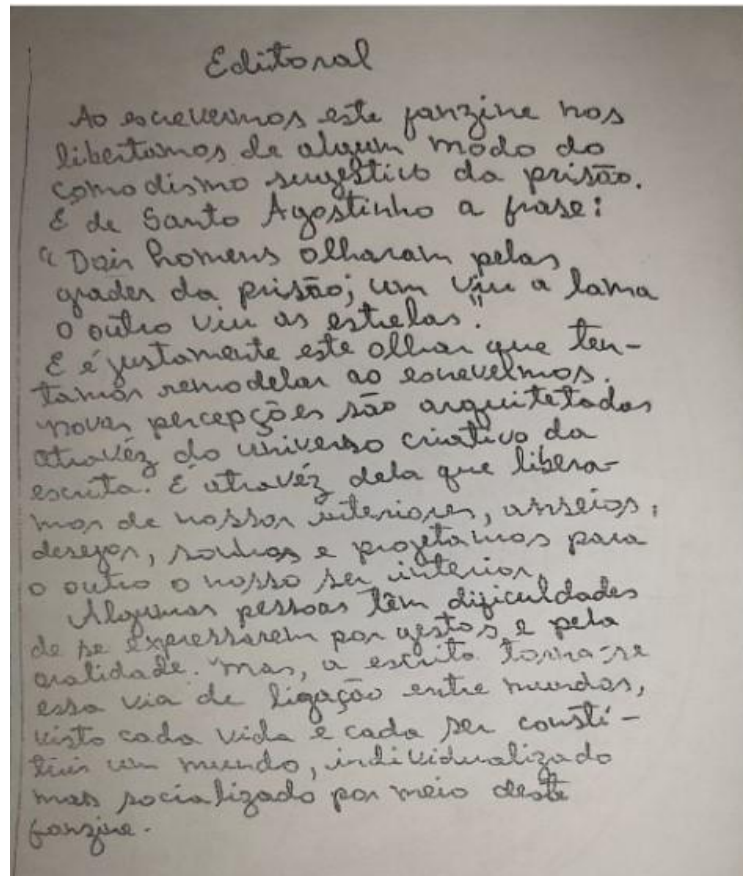 Editoral
Ao escrevermos este fanzine nos
libertamos de algum modo do
comodismo sugestivo da prisão.
É de Santo Agostinho a frase:
"Dois homens olharam pelas
grades da prisão; um viu a lama
o outro viu as estrelas."
E é justamente este olhar que ten-
tamos remodelar ao escrevermos.
novas percepções são arquitetadas
atravéz do universo criativo da
escrita. É atravéz dela que libera-
mos de nossos interiores, ansseios,
desejos, sonhos e projetamos para
o outro o nosso ser interior.
Algumas pessoas têm dificuldades
de se expressarem por gestos e pela
oralidade. mas, a escrita torna-se
essa via de ligação entre mundos,
visto cada vida e cada ser consti-
tuir um mundo, individualizado
mas socializado por meio deste
fanzine.